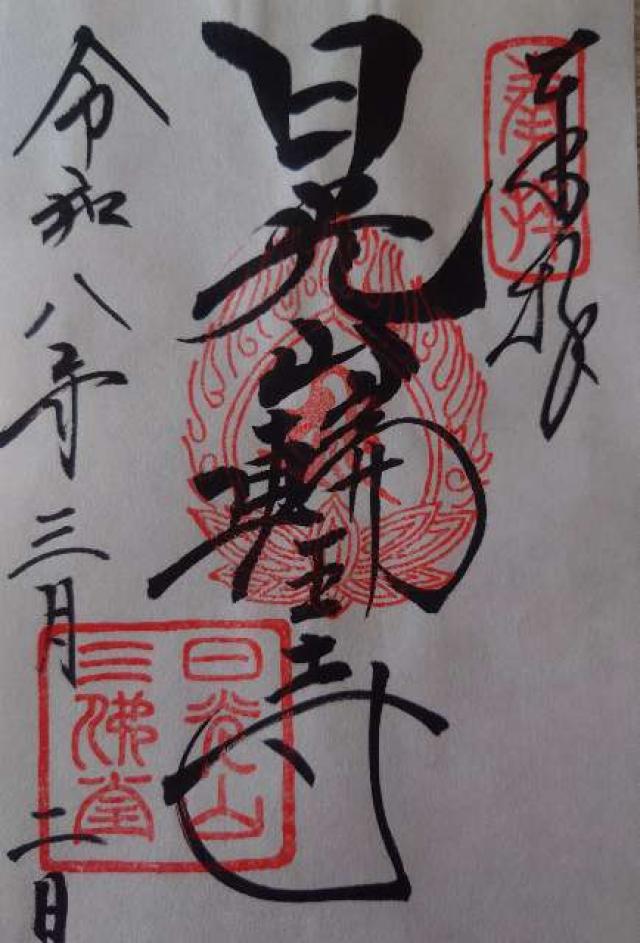 奉拝
奉拝
日光山輪王寺
日光山
三佛堂
令和八年三月二日